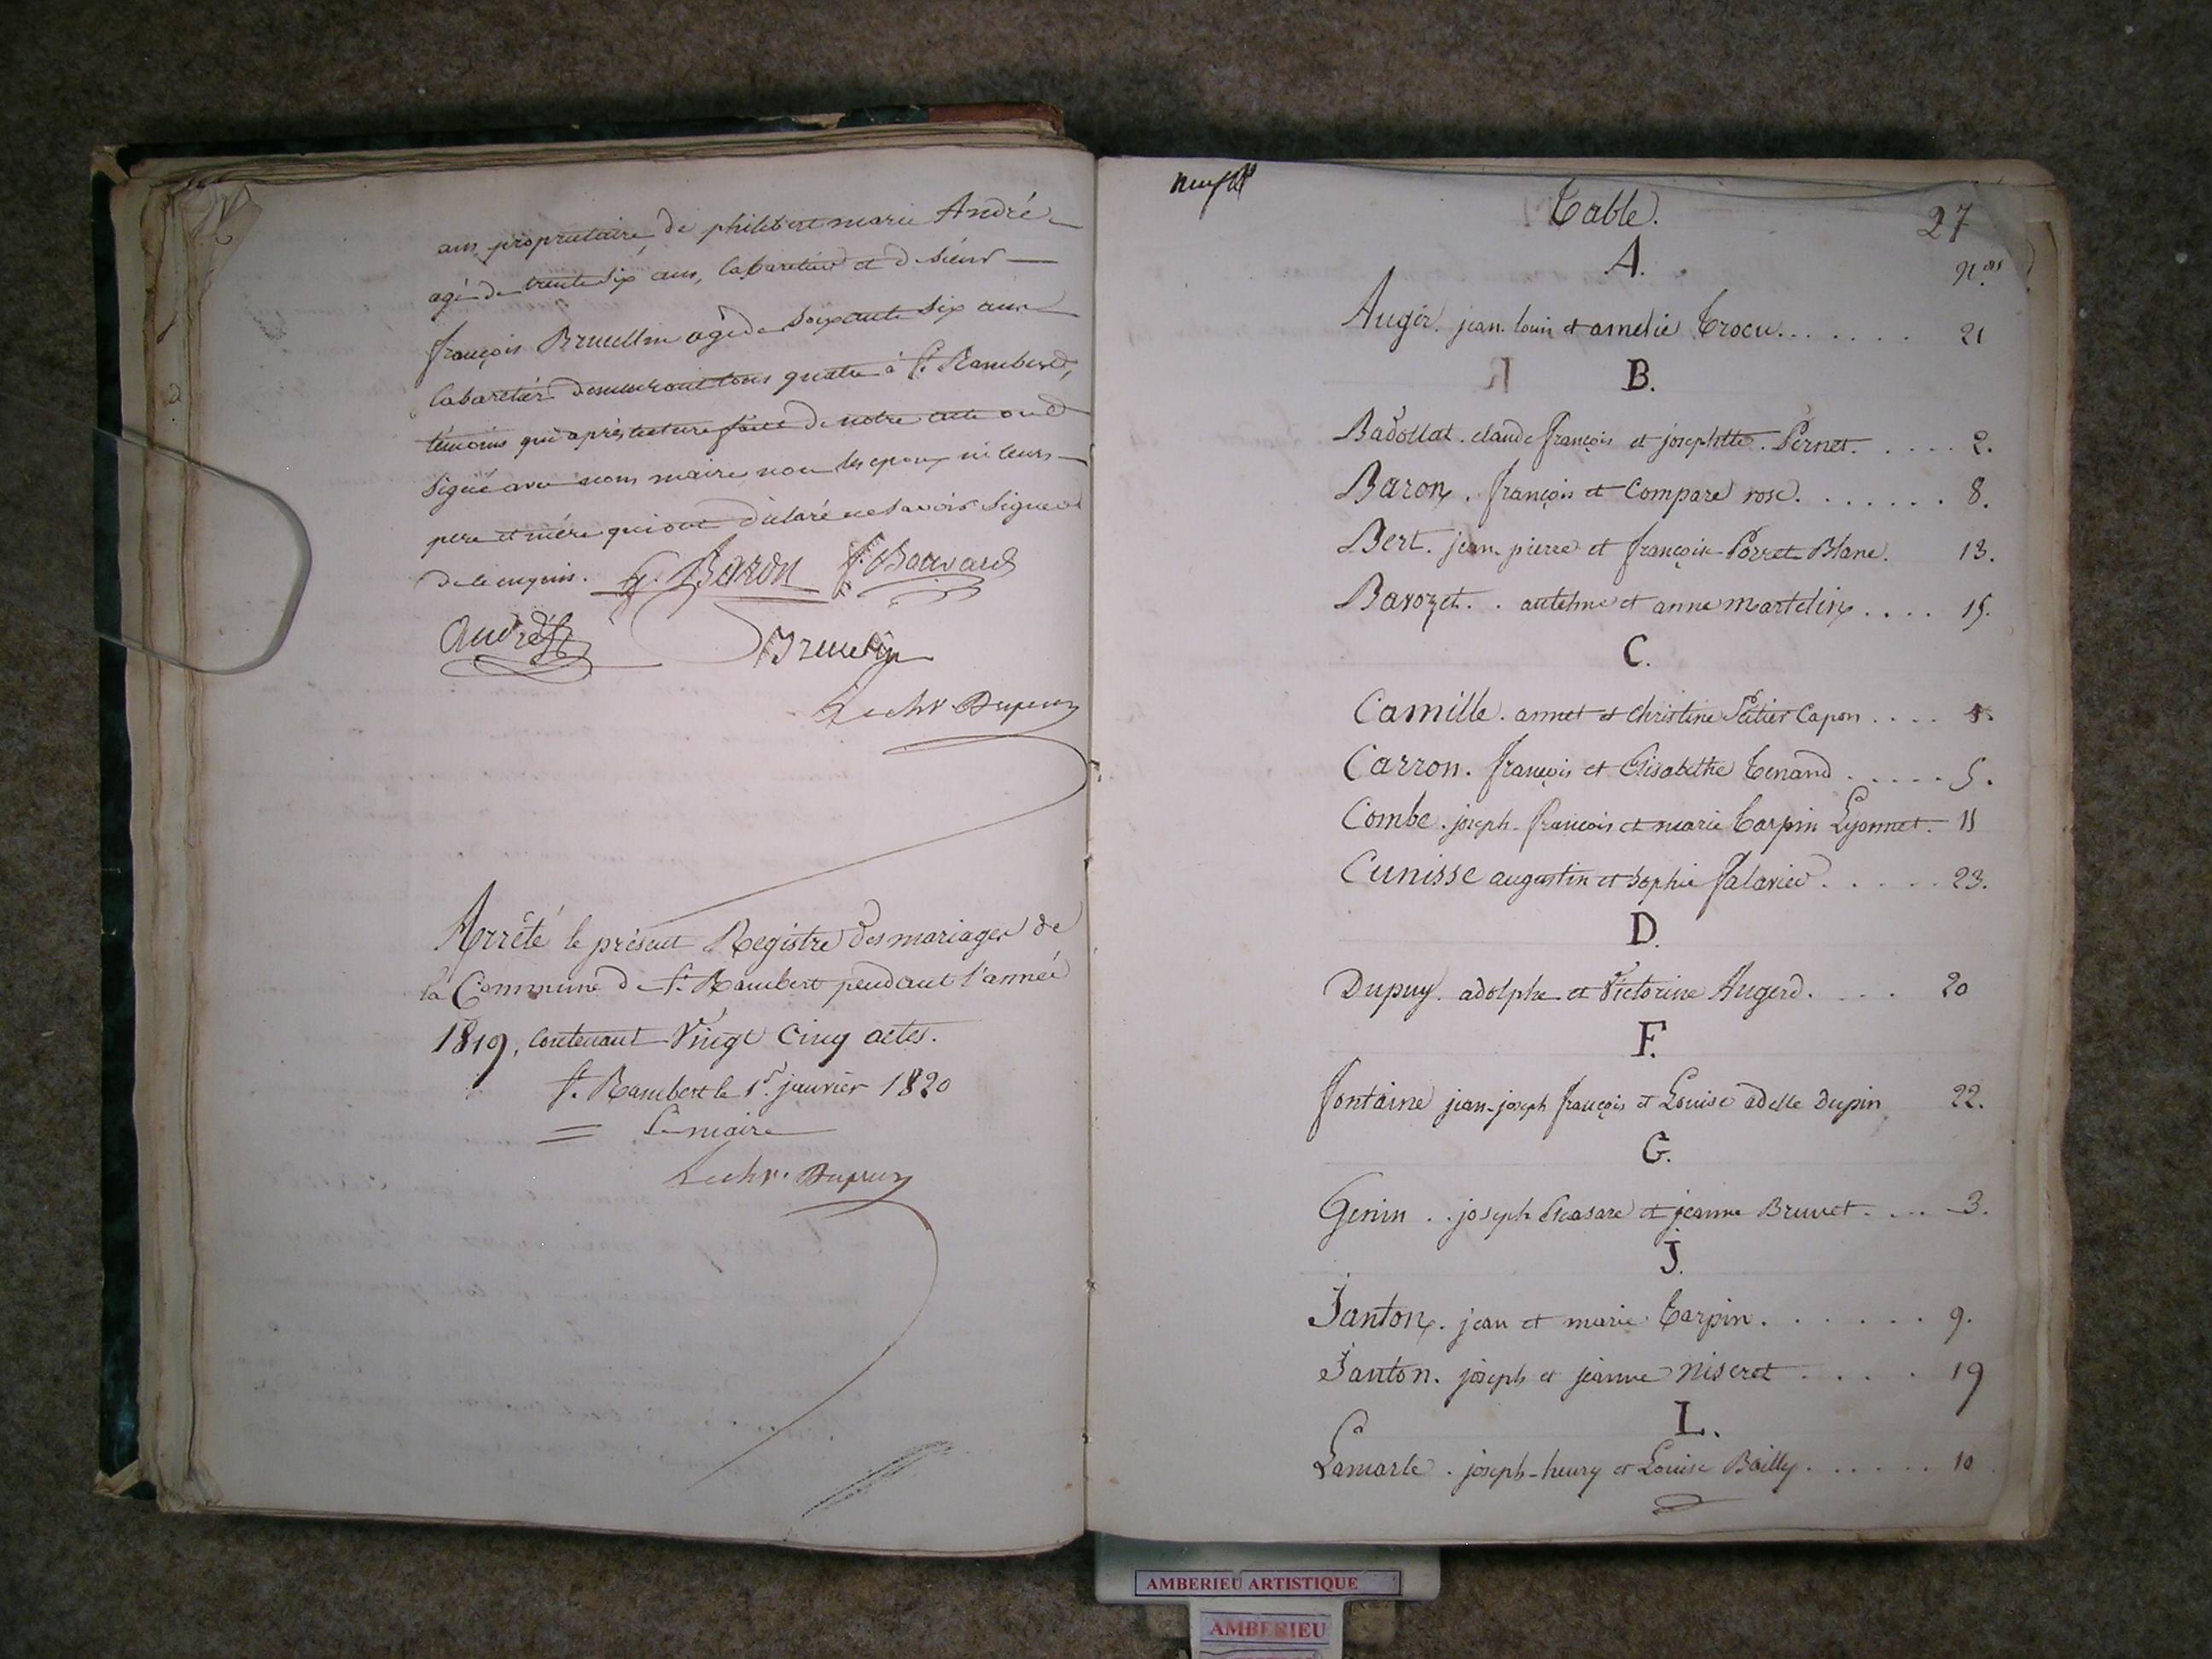 ans, proprietaire, de philibert marie André
agé de trente six ans, Cabaretier et d sieur
françois Bruellin agé de soixante six ans
Cabaretier demeurant tous quatre à St. Rambert,
témoins qui après lecture faite de notre acte ont
signé avec nous maire non les epoux ni leurs
pere et mère qui ont déclaré ne savoir signer
de ce enquis. Baron Bouvard
André
Le chr. Dupuy
Arrêté le présent Registre des mariages de
la Commune de St. Rambert pendant l'année
1819, contenant Vingt Cinq actes.
St. Rambert le 1er. janvier 1820
Le maire
Le chr. Dupuy
Table. 27
A. N.os
Auger. jean louis et amelie Trocu....... 21
B.
Badollat. claude françois et josephtte. Pernet. .... 2.
Baron. françois et Compare rose. ...... 8.
Bert. jean pierre et françoise Porret Blanc. 13.
Bavozet. . antelme et anne martelin.... 15.
C.
Camille. annet et Christine Capon ....
Carron. françois et Elisabethe Tenand ..... 5.
Combe. joseph françois et marie Tarpin Lyonnet. 11
Cunisse augustin et Sophie .... 23.
D.
Dupuy. adolphe et Victorine Augerd. ... 20
F.
fontaine jean-joseph françois et Louise adelle Dupin 22.
G.
Genin .. joseph et jeanne Brunet.... 3.
J.
Janton. jean et marie Tarpin. ...... 9.
Janton. joseph et jeanne Niseret ..... 19
L.
Lamarle. joseph-henry et Louise Bailly. ..... 10
AMBERIEU ARTISTIQUE
AMBERIEU